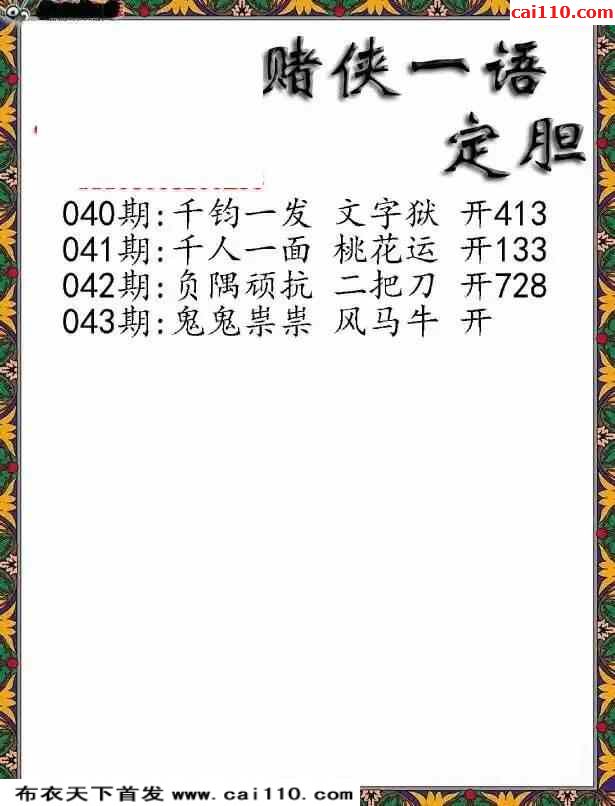 cai110.com
赌侠一语
定胆
040期:千钧一发 文字狱 开413
041期:千人一面 桃花运 开133
042期:负隅顽抗 二把刀 开728
043期:鬼鬼祟祟 风马牛 开
布衣天下首发 www.cai110.com